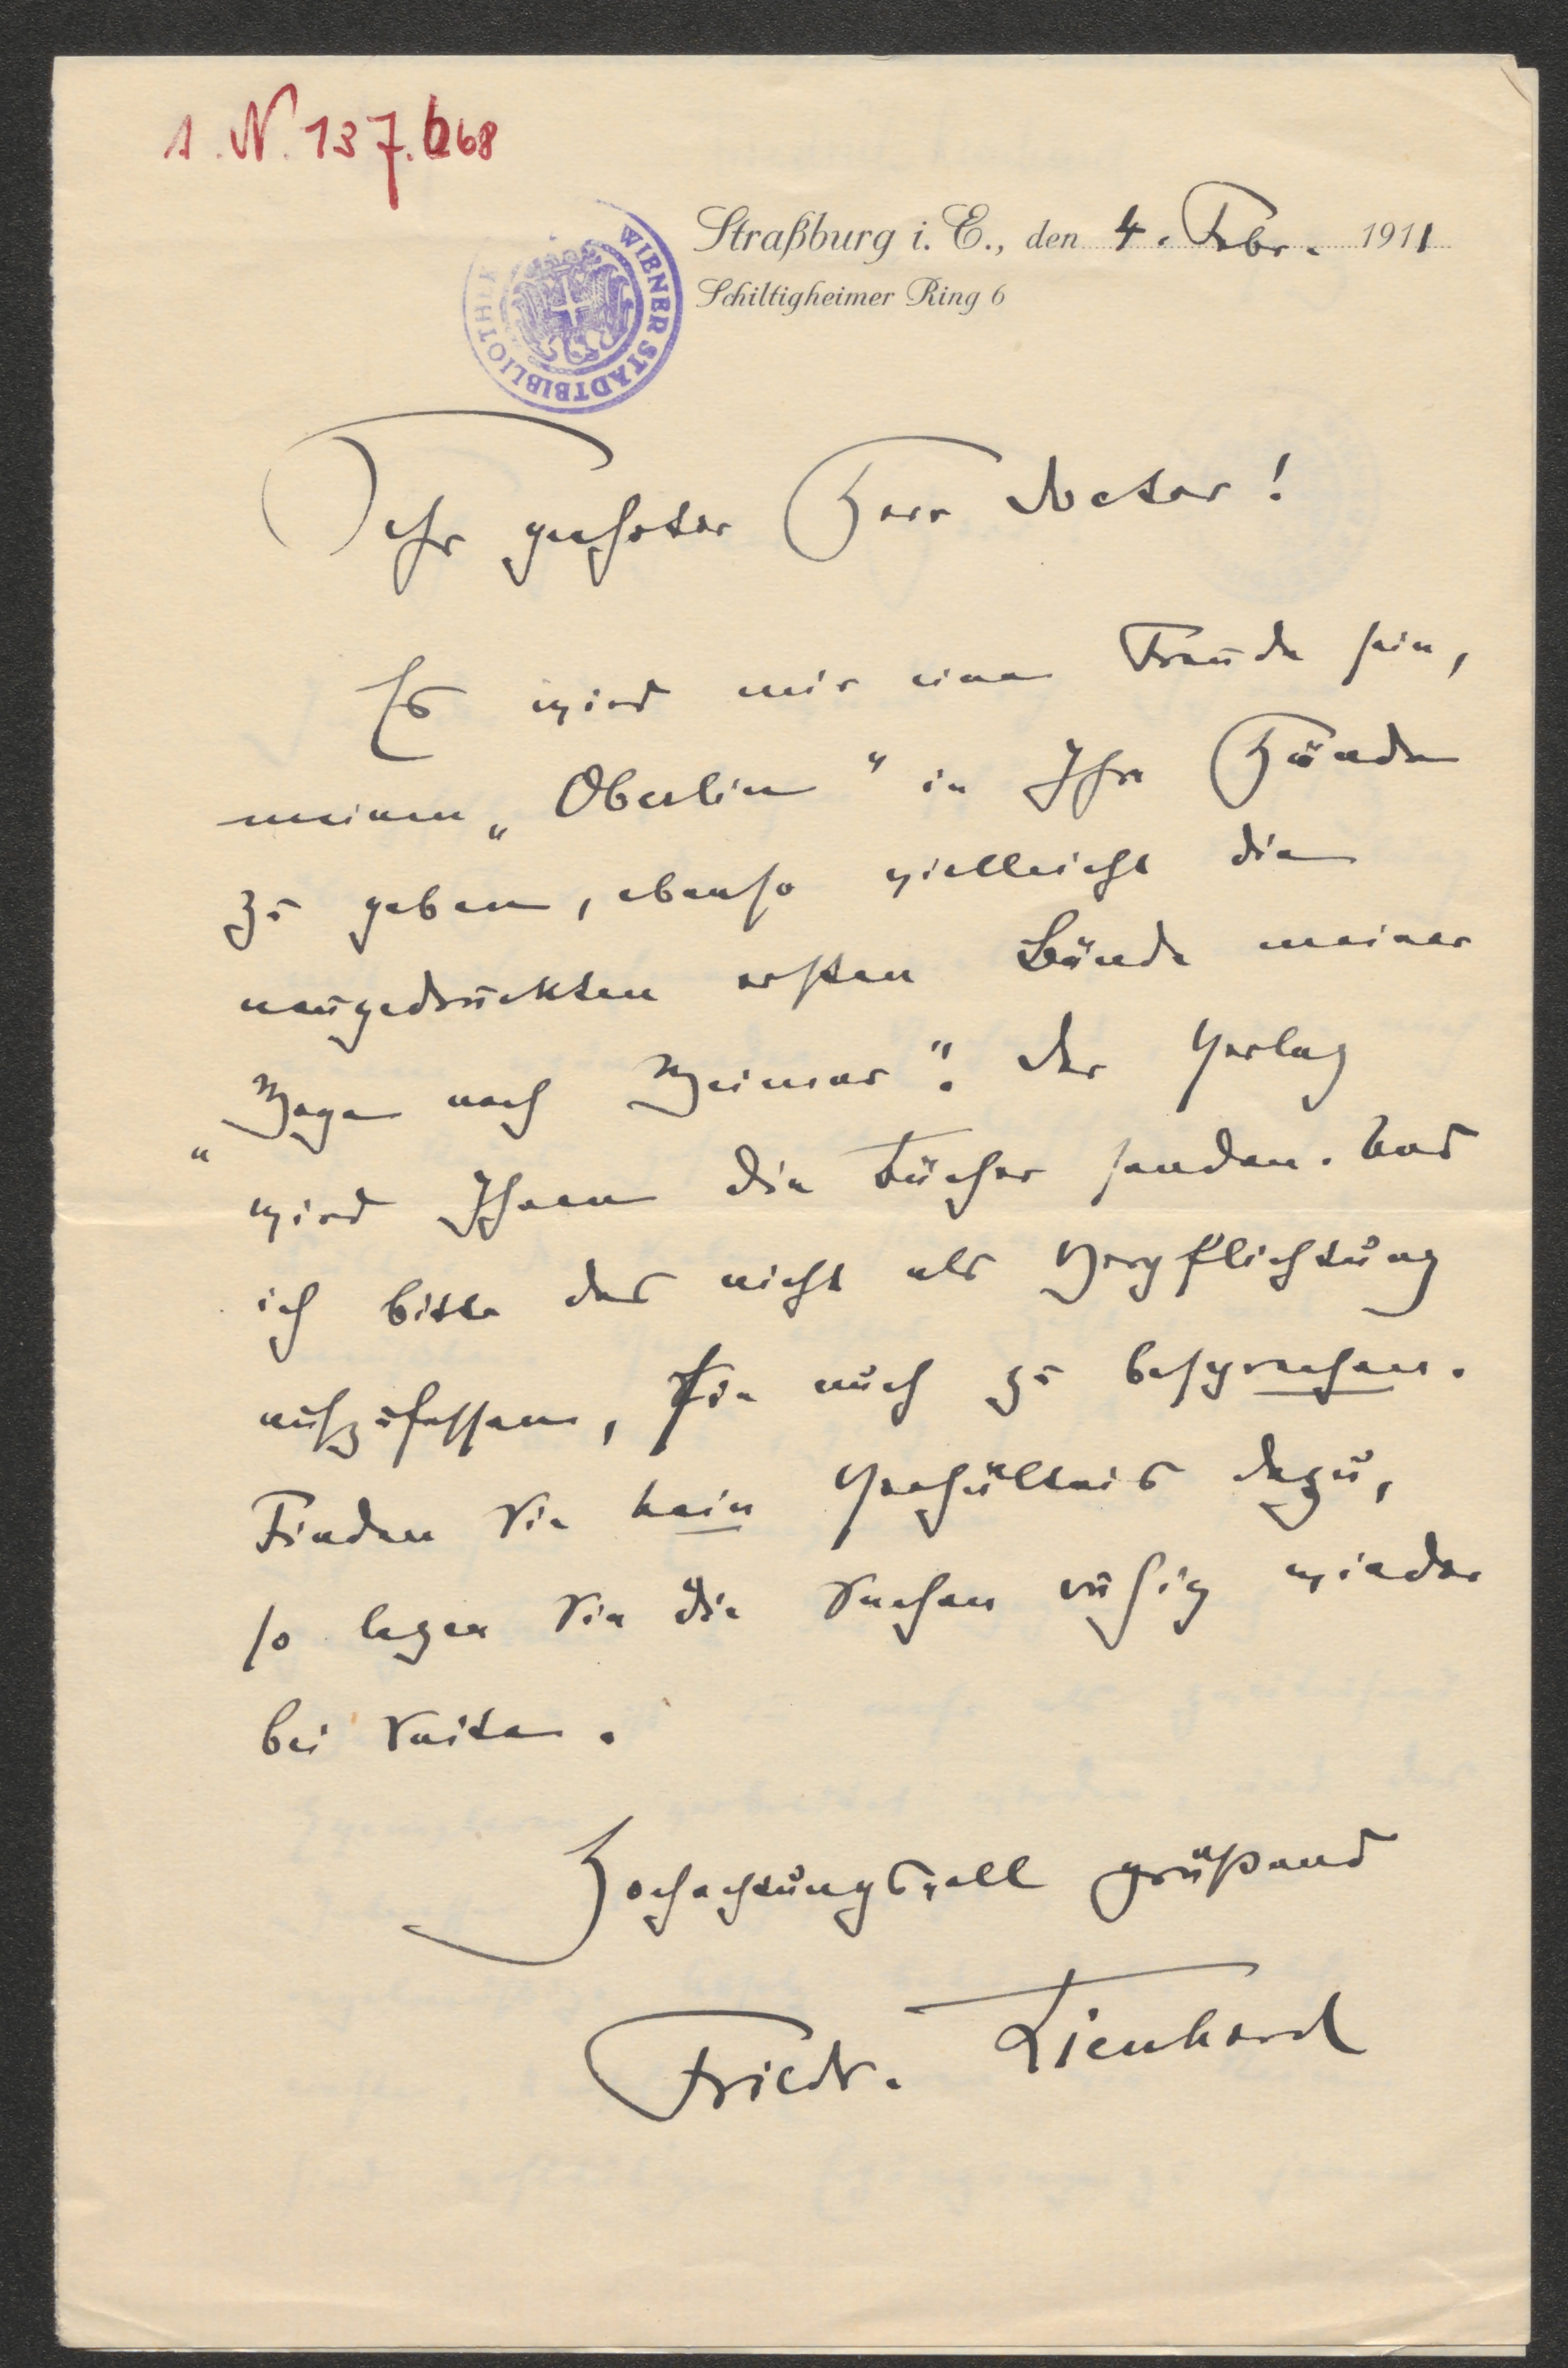 1. N. 137.668
WIENER STADTBIBLIOTHEK
Straßburg i. E., den 4. Febr. 1911
Schiltigheimer Ring 6
Sehr geehrter Herr Doctor!
Es wird mir eine Freude sein,
meinen „Oberlin" in Ihre Hände
zu geben, ebenso vielleicht die
neugedruckten ersten Bände meiner
„Wege nach Weimar". Der Verlag
wird Ihnen die Bücher senden. Und
ich bitte das nicht als Verpflichtung
aufzufassen, sie auch zu besprechen.
Finden Sie kein Verhältnis dazu,
so legen Sie die Sachen ruhig wieder
bei Seite.
Hochachtungsvoll grüßend
Friedr. Lienhard